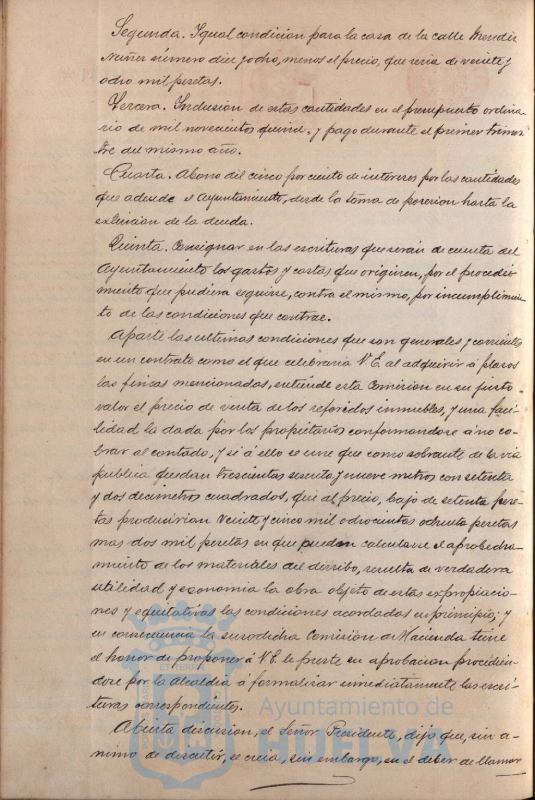 Segunda. Igual condicion para la casa de la calle Mendez
Nuñez número diez y ocho, menos el precio, que seria de veinte y
ocho mil pesetas.
Tercera. Inclusion de estas cantidades en el presupuesto ordina-
rio de mil novecientos quince y pago durante el primer trimes
tre del mismo año.
Cuarta. Abono del cinco por ciento de intereses por las cantidades
que adeude el Ayuntamiento, desde la toma de posesion hasta la
extincion de la deuda.
Quinta. Consignar en las escrituras que serán de cuenta del
Ayuntamiento los gastos y costas que originen, por el procedi-
miento que pudiera seguirse, contra el mismo, por incumplimien
to de las condiciones que contrae.
Aparte las ultimas condiciones que son generales y corrientes
en un contrato como el que celebraria V.E. al adquirir á plazos
las fincas mencionadas, entiende esta Comision en su justo
valor el precio de venta de los referidos inmuebles, y una faci-
lidad la dada por los propietarios conformandose á no co-
brar al contado, y si á ello se une que como sobrante de la via
publica quedan trescientos sesenta y nueve metros con setenta
y dos decimetros cuadrados, que al precio, bajo de setenta pese-
tas producirian veinte y cinco mil ochocientas ochenta pesetas
mas dos mil pesetas en que pueden calcularse el aprovecha-
miento de los materiales del derribo, resulta de verdadera
utilidad y economia la obra objeto de estas expropiacio-
nes y equitativas las condiciones acordadas en principio; y
en consecuencia la susodicha Comision de Hacienda tiene
el honor de proponer á V.E. le preste su aprobacion procedien-
dose por la Alcaldia á formalizar inmediatamente las escri-
turas correspondientes.
Abierta discusion, el Señor Presidente, dijo que, sin á-
nimo de discutir, se creia, sin embargo, en el deber de llamar
Ayuntamiento de
HUELVA